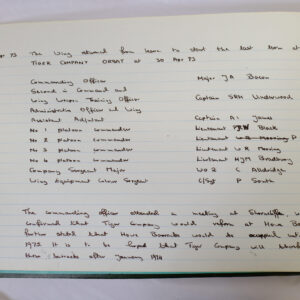 Apr 73 The Wing returned from leave to start the last term at
TIGER COMPANY ORBAT at 30 Apr 73
Commanding Officer Major JA Bacon
Second in Command and
Wing Weapon Training Officer Captain SRH Underwood
Administrative Officer and Wing
Assistant Adjutant Captain A James
No 1 platoon Commander Lieutenant Black
No 2 platoon Commander Lieutenant
No 3 platoon Commander Lieutenant
No 4 platoon Commander Lieutenant HJM Bradbury
Company Sergeant Major WO 2 C Allbridge
Wing Equipment Colour Sergeant C/Sgt P South
The commanding officer attended a meeting at
confirmed that Tiger Company would reform at Howe
further stated that Howe Barracks would be occupied
1972 it is to be hoped that Tiger Company will
these barracks after January 1974